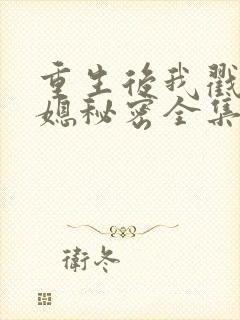 重生後我戳
媳秘密全集
衛冬